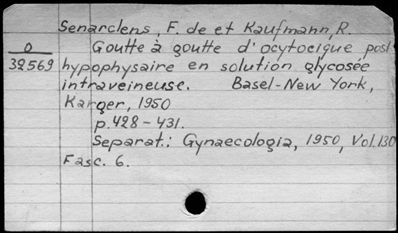 Senarclens, F. de et Kaufmann, R.
O Goutte à goutte d'ocytocique post
32569 hypophysaire en solution glycosée
intraveineuse. Basel-New York,
Karger, 1950
p. 428-431.
Separat.: Gynaecologia, 1950, Vol. 130
Fasc. 6.